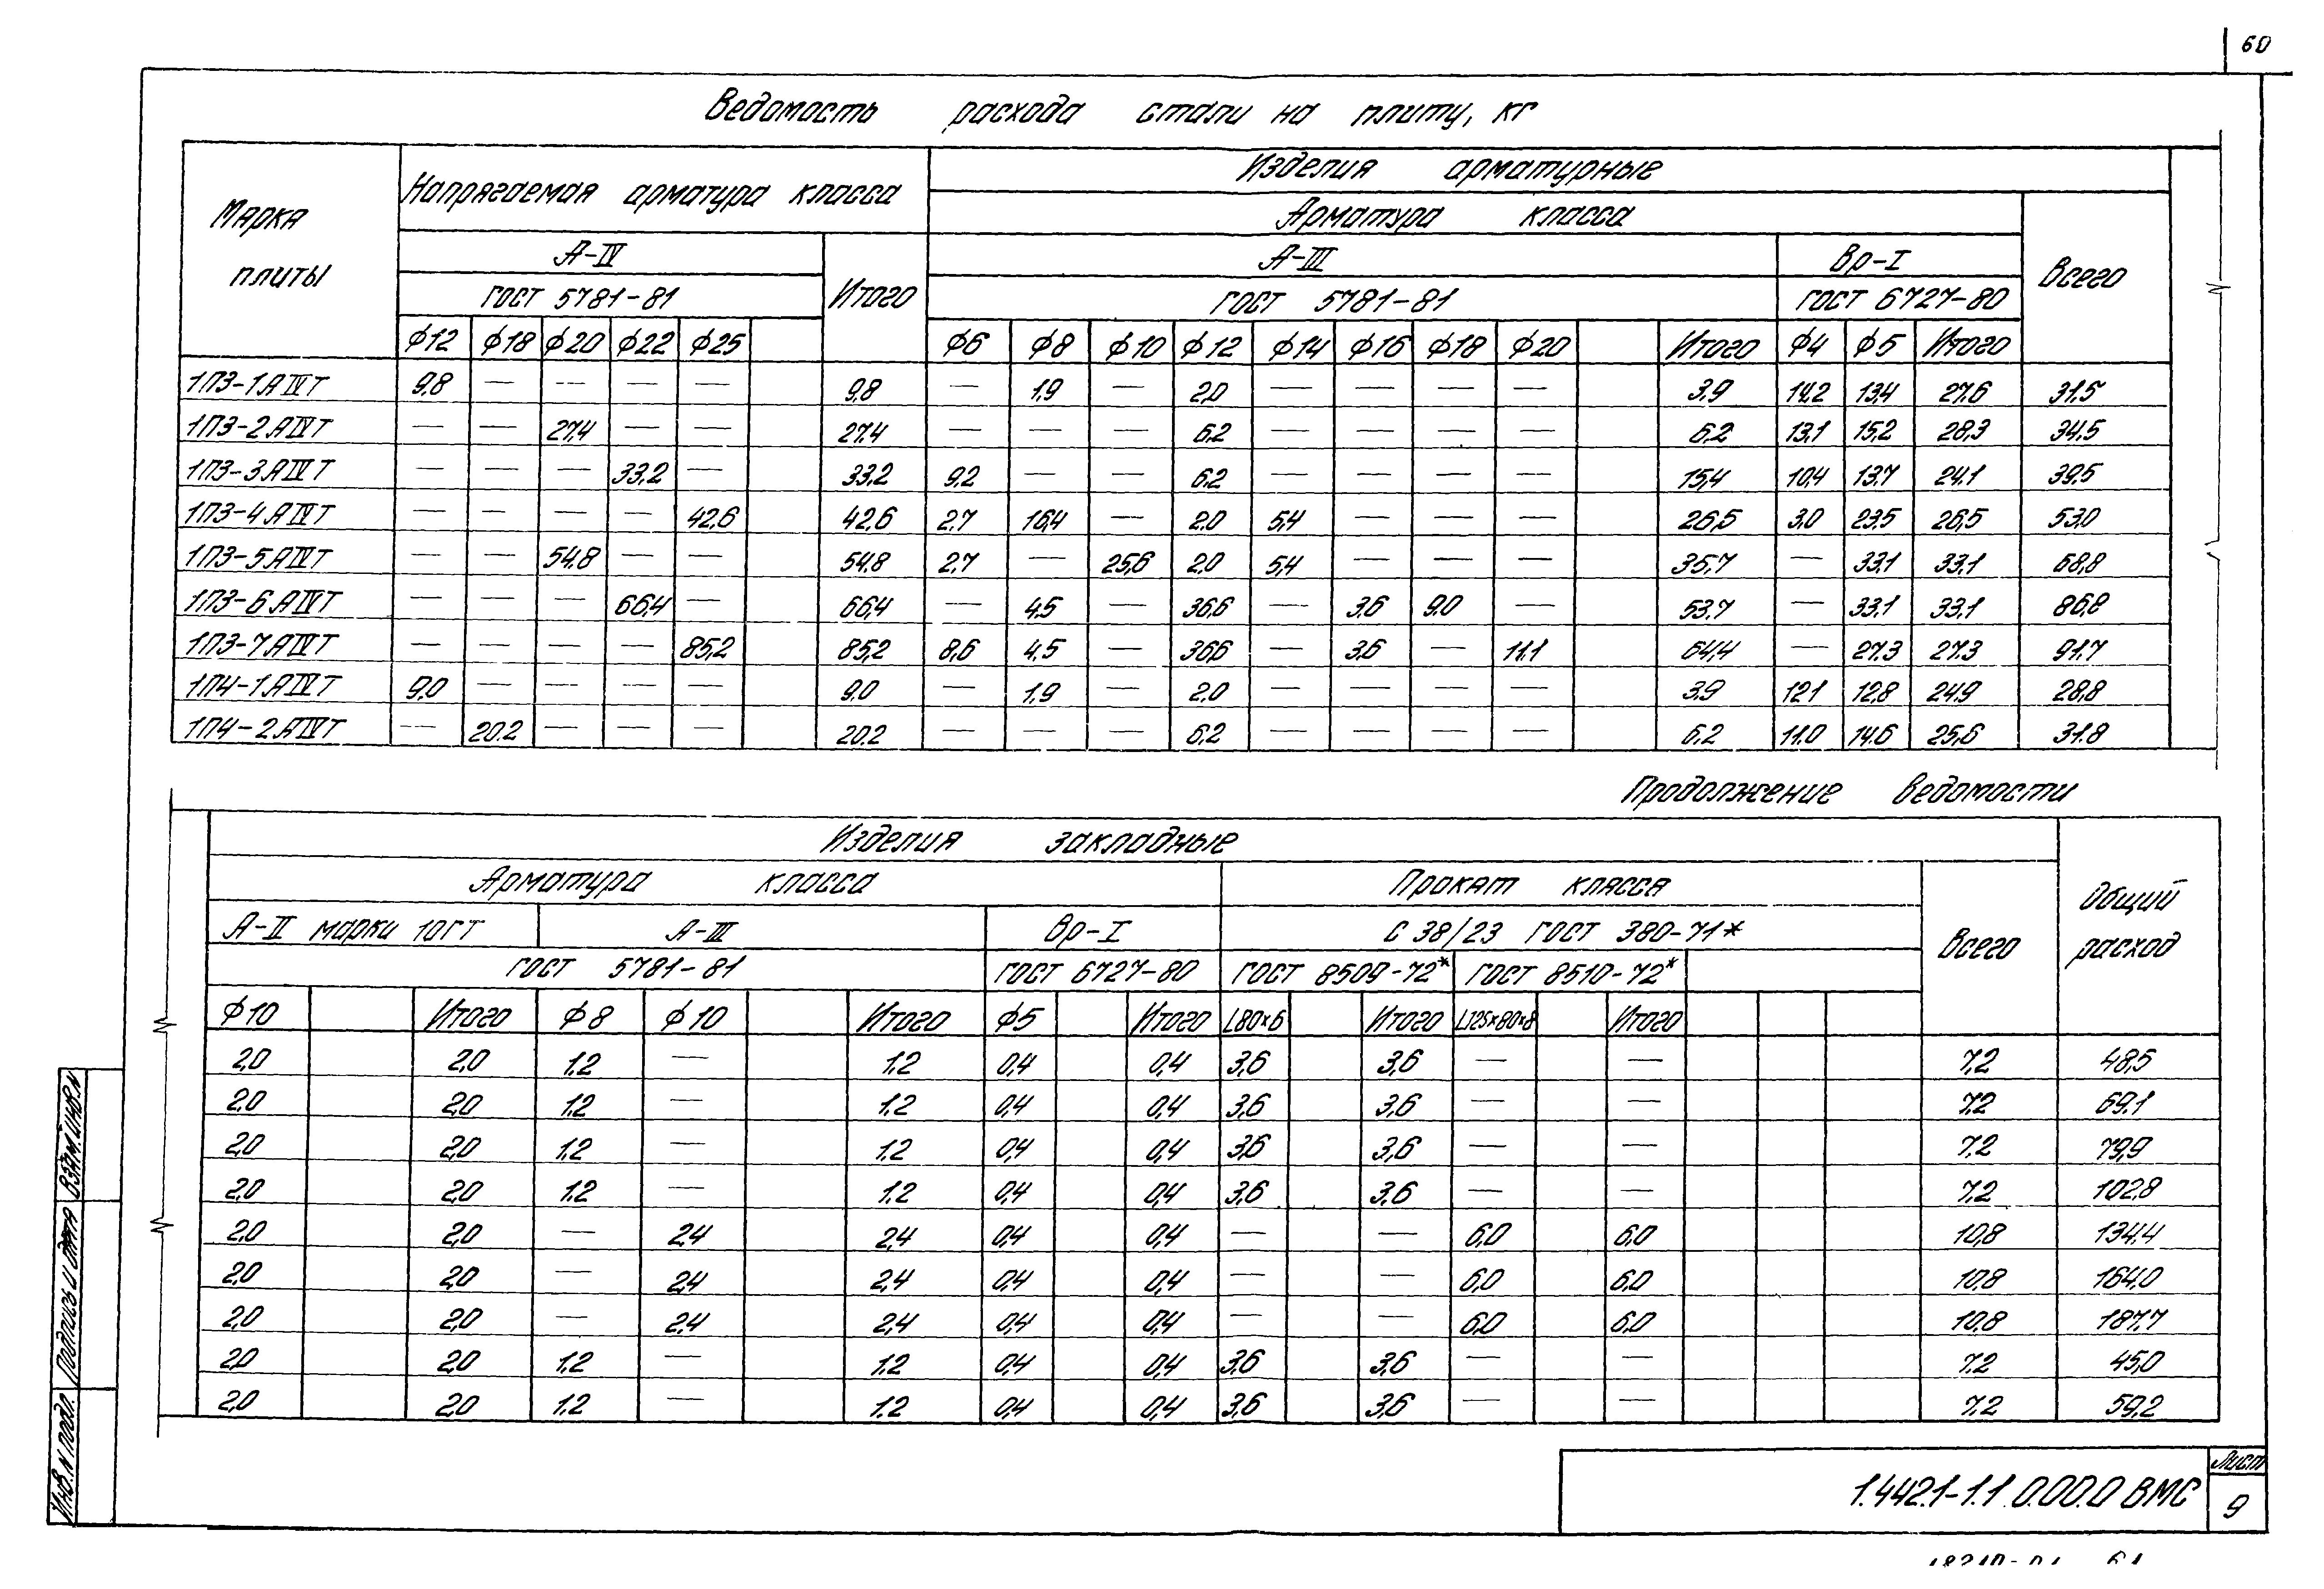 60
Ведомость расхода стали на плиту, кг
Марка плиты
Напрягаемая арматура класса
Изделия арматурные
Арматура класса
Всего
А-IV
Итого
А-III
Вр-I
ГОСТ 5781-81
ГОСТ 5781-81
ГОСТ 6727-80
ф12 ф18 ф20 ф22 ф25 ф6 ф8 ф10 ф12 ф14 ф16 ф18 ф20 Итого ф4 ф5 Итого
1П3-1АIVТ 9,8 — — — — 9,8 — 1,9 — 2,0 — — — — 3,9 14,2 13,4 27,6 31,5
1П3-2АIVТ — — 27,4 — — 27,4 — — — 6,2 — — — — 6,2 13,1 15,2 28,3 34,5
1П3-3АIVТ — — — 33,2 — 33,2 9,2 — — 6,2 — — — — 15,4 10,4 13,7 24,1 39,5
1П3-4АIVТ — — — — 42,6 42,6 2,7 16,4 — 2,0 5,4 — — — 26,5 3,0 23,5 26,5 53,0
1П3-5АIVТ — — 54,8 — — 54,8 2,7 — 25,6 2,0 5,4 — — — 35,7 — 33,1 33,1 68,8
1П3-6АIVТ — — — 66,4 — 66,4 — 4,5 — 36,6 — 3,6 9,0 — 53,7 — 33,1 33,1 86,8
1П3-7АIVТ — — — — 85,2 85,2 8,6 4,5 — 36,6 — 3,6 — 11,1 64,4 — 27,3 27,3 91,7
1П4-1АIVТ 9,0 — — — — 9,0 — 1,9 — 2,0 — — — — 3,9 12,1 12,8 24,9 28,8
1П4-2АIVТ — 20.2 — — — 20.2 — — — 6,2 — — — — 6,2 11.0 14.6 25,6 31.8
Продолжение ведомости
Изделия закладные
Общий расход
Арматура класса
Прокат класса
Всего
А-II марки 10ГТ
А-III
Вр-I
С 38/23 ГОСТ 380-71*
ГОСТ 5781-81
ГОСТ 6727-80
ГОСТ 8509-72*
ГОСТ 8510-72*
ф10 Итого ф8 ф10 Итого ф5 Итого L80×6 Итого L125×80×8 Итого
2,0 2,0 1.2 — 1.2 0,4 0,4 3,6 3,6 — — 7,2 48,5
2,0 2,0 1.2 — 1.2 0,4 0,4 3,6 3,6 — — 7,2 69,1
2,0 2,0 1.2 — 1.2 0,4 0,4 3,6 3,6 — — 7,2 79,9
2,0 2,0 1.2 — 1.2 0,4 0,4 3,6 3,6 — — 7,2 102,8
2,0 2,0 — 2,4 2,4 0,4 0,4 — — 6,0 6,0 10,8 134,4
2,0 2,0 — 2,4 2,4 0,4 0,4 — — 6,0 6,0 10,8 164,0
2,0 2,0 — 2,4 2,4 0,4 0,4 — — 6,0 6,0 10,8 187,7
2,0 2,0 1.2 — 1.2 0,4 0,4 3,6 3,6 — — 7,2 45,0
2,0 2,0 1.2 — 1.2 0,4 0,4 3,6 3,6 — — 7,2 59,2
Инв.N подл. Подпись и дата Взам.инв.N
1.442.1-1.1 0.00.0 ВМС
Лист
9